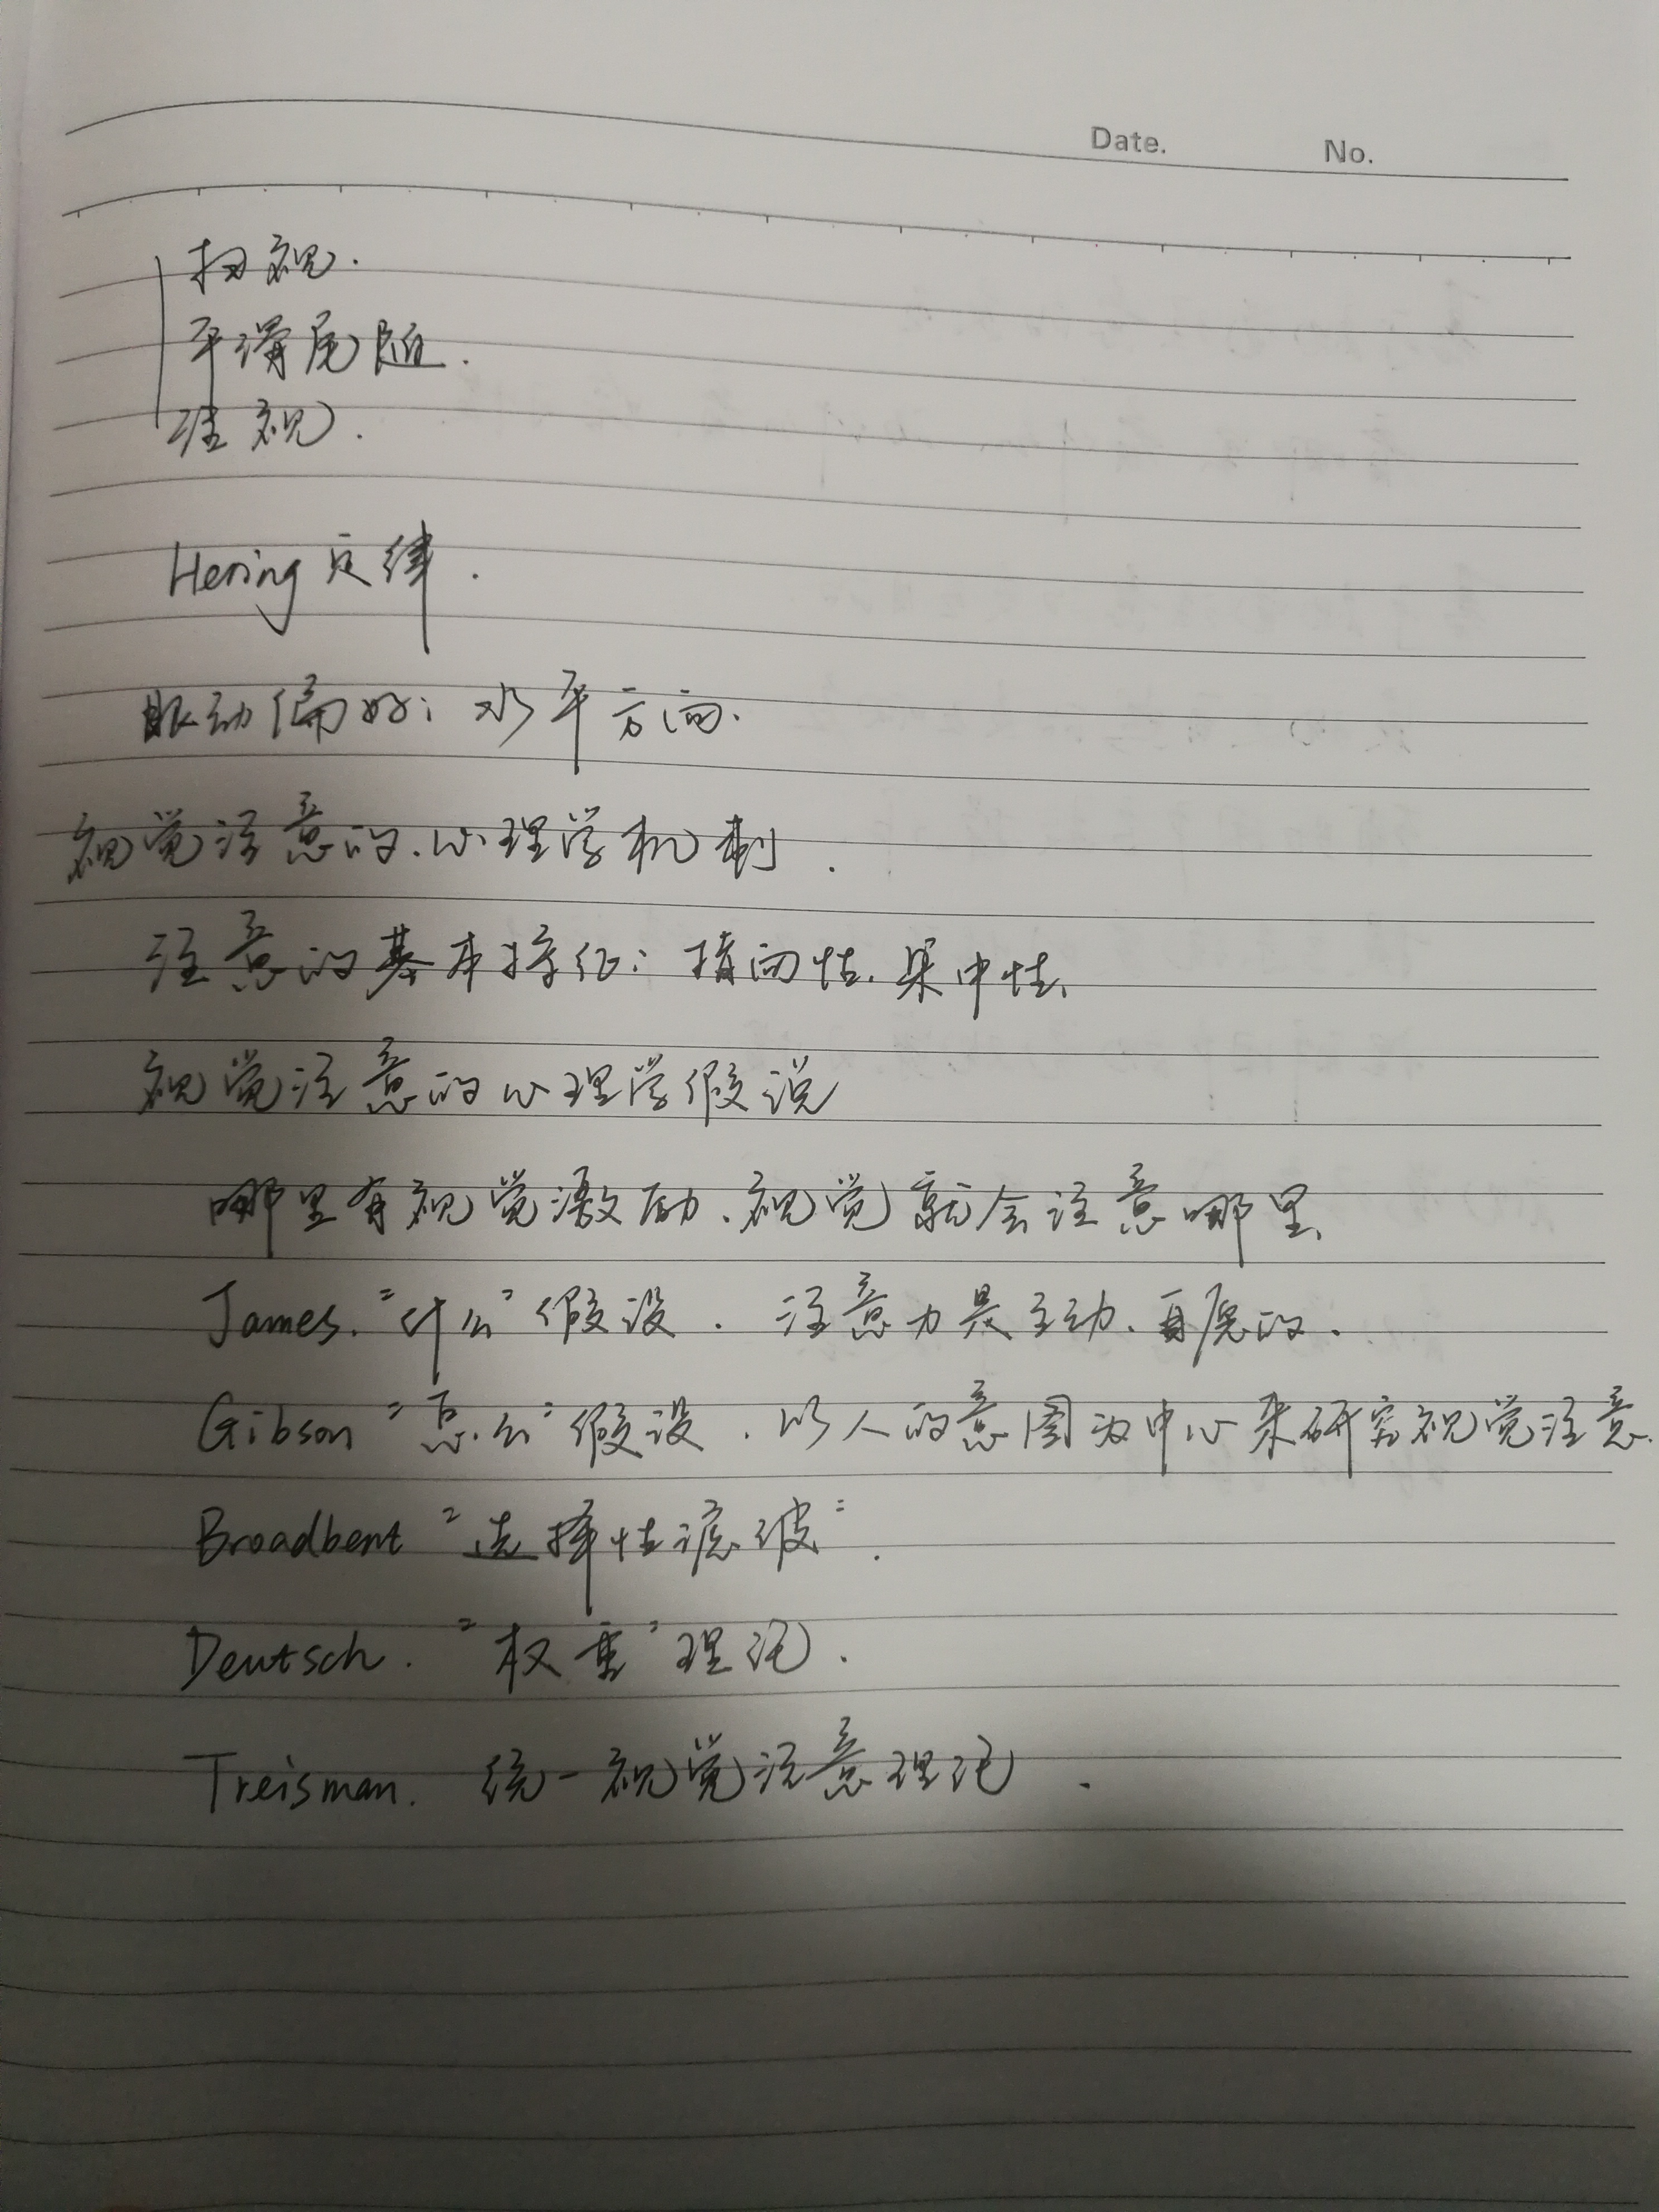 Date. No.
扫视.
平滑尾随.
注视.
Hering 定律.
眼动偏好：水平方向.
视觉注意的心理学机制.
注意的基本特征：指向性、集中性、
视觉注意的心理学假说
哪里有视觉激励、视觉就会注意哪里、
James. "什么" 假设. 注意力是主动、自愿的.
Gibson "怎么" 假设. 以人的意图为中心来研究视觉注意.
Broadbent "选择性滤波".
Deutsch. "权重" 理论.
Treisman. 统一视觉注意理论.